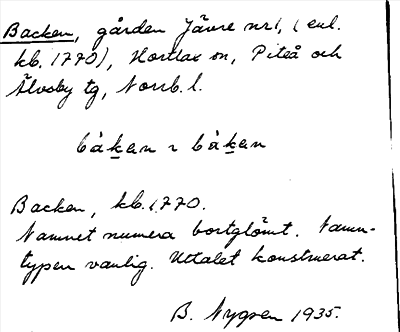 Backen, gården Jävre nr 1, (enl.
kb. 1770), Hortlax sn, Piteå och
Älvsby tg, Norrb. l.
båkan ~ båkan
Backen, kb. 1770.
Namnet numera bortglömt. Namn-
typen vanlig. Uttalet konstruerat.
B. Nygren 1935.